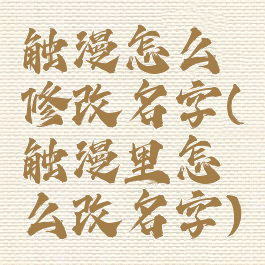 触漫怎么
修改名字(
触漫里怎
么改名字)